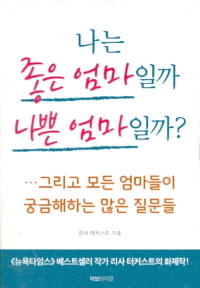 나는
좋은 엄마일까
나쁜 엄마일까?
…그리고 모든 엄마들이
궁금해하는 많은 질문들
리사 터커스트 지음
《뉴욕타임스》 베스트셀러 작가 리사 터커스트의 화제작!
아브라카왐